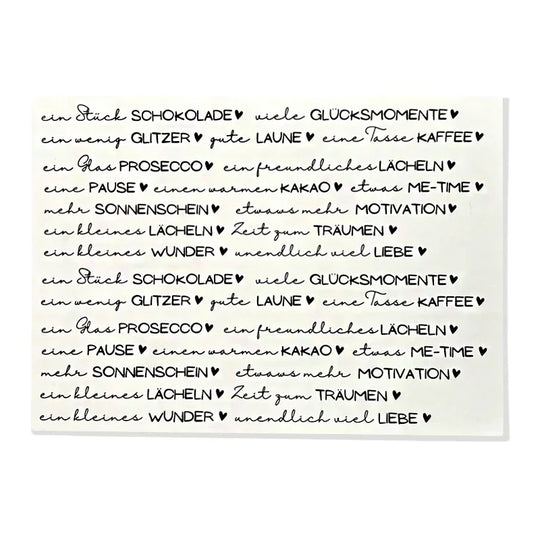 ein Stück SCHOKOLADE♥ viele GLÜCKSMOMENTE♥
ein wenig GLITZER♥ gute LAUNE♥ eine Tasse KAFFEE♥
ein Glas PROSECCO♥ ein freundliches LÄCHELN♥
eine PAUSE♥ einen warmen KAKAO♥ etwas ME-TIME♥
mehr SONNENSCHEIN♥ etwaws mehr MOTIVATION♥
ein kleines LÄCHELN♥ Zeit zum TRÄUMEN♥
ein kleines WUNDER♥ unendlich viel LIEBE♥
ein Stück SCHOKOLADE♥ viele GLÜCKSMOMENTE♥
ein wenig GLITZER♥ gute LAUNE♥ eine Tasse KAFFEE♥
ein Glas PROSECCO♥ ein freundliches LÄCHELN♥
eine PAUSE♥ einen warmen KAKAO♥ etwas ME-TIME♥
mehr SONNENSCHEIN♥ etwaws mehr MOTIVATION♥
ein kleines LÄCHELN♥ Zeit zum TRÄUMEN♥
ein kleines WUNDER♥ unendlich viel LIEBE♥